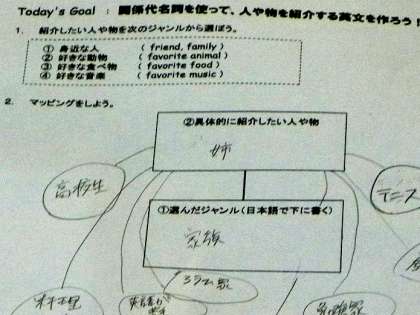 Today's Goal : 関係代名詞を使って、人や物を紹介する英文を作ろう！
1. 紹介したい人や物を次のジャンルから選ぼう。
① 身近な人 ( friend, family )
② 好きな動物 ( favorite animal )
③ 好きな食べ物 ( favorite food )
④ 好きな音楽 ( favorite music )
2. マッピングをしよう。
②具体的に紹介したい人や物
姉
高校生
テニス
①選んだジャンル(日本語で下に書く)
家族
料理